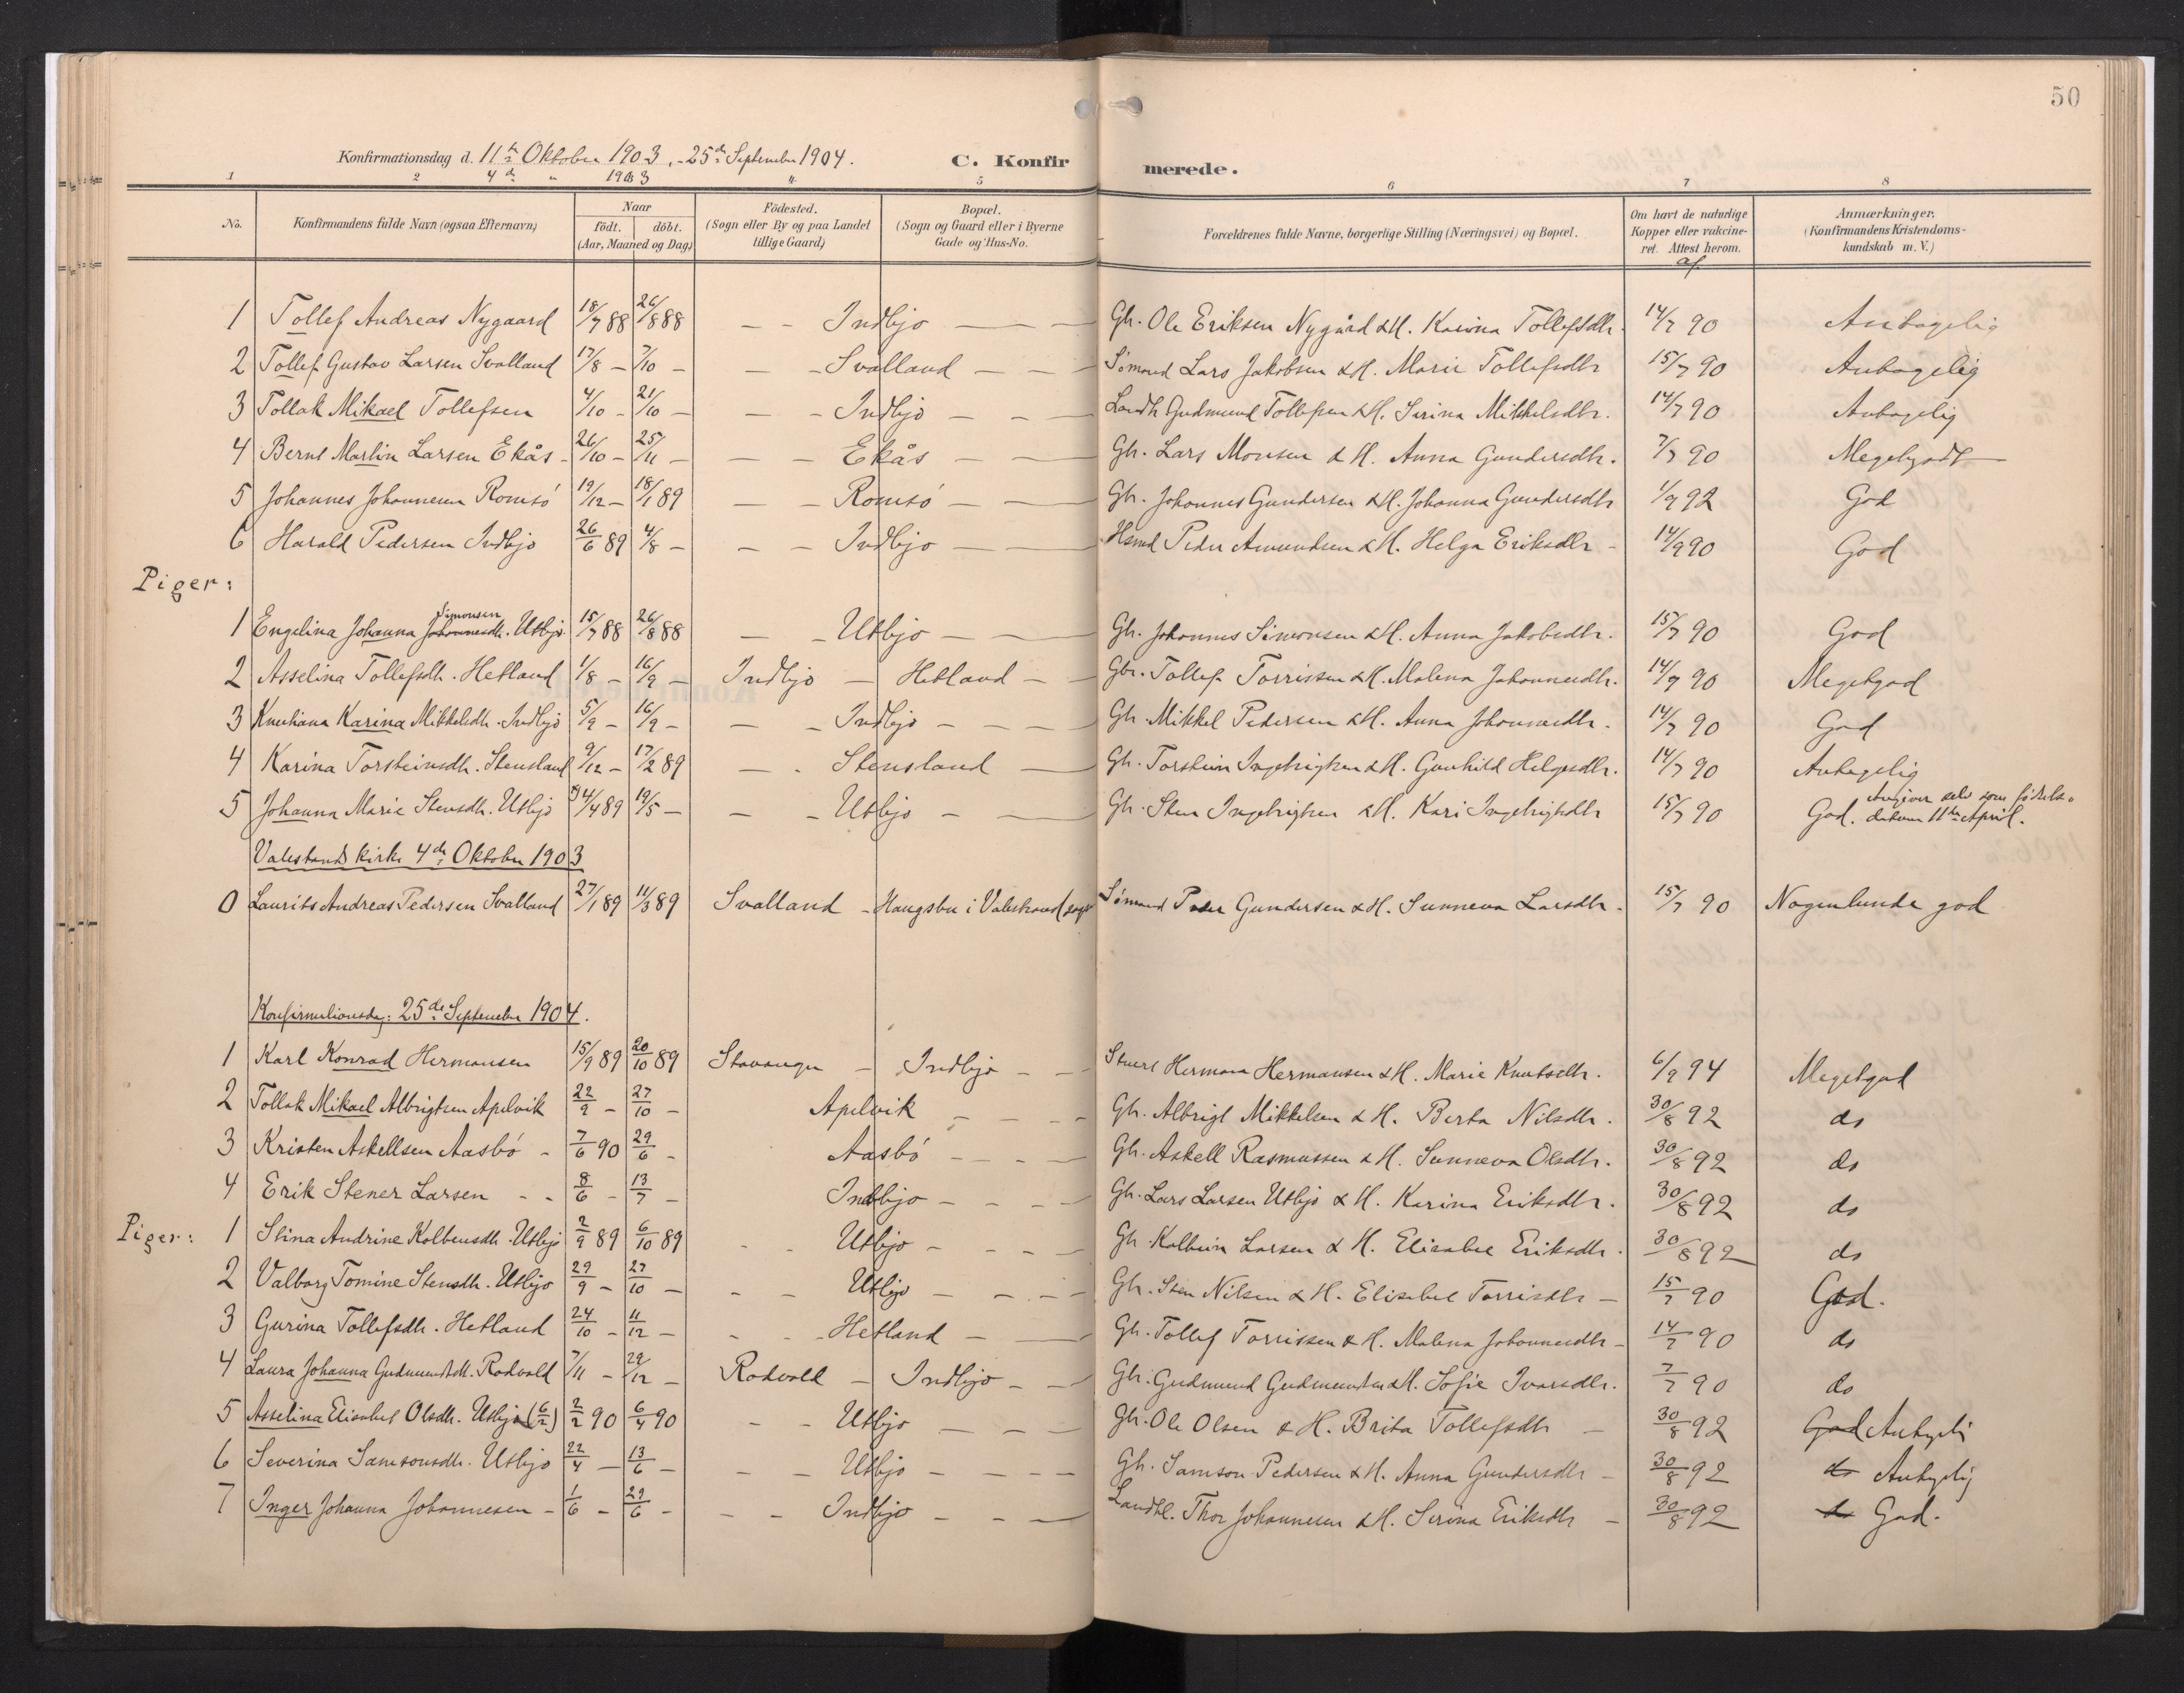 50
Konfirmationsdag d. 11te Oktober 1903, - 25de September 1904. C. Konfirmerede.
4de " 1903
1 2 4. 5 6 7 8
No. Konfirmandens fulde Navn (ogsaa Efternavn) Naar födt. döbt. (Aar, Maaned og Dag) Födested. (Sogn eller By og paa Landet tillige Gaard) Bopæl. (Sogn og Gaard eller i Byerne Gade og Hus-No. Forældrenes fulde Navne, borgerlige Stilling (Næringsvei) og Bopæl. Om havt de naturlige Kopper eller vakcineret. Attest herom. af Anmærkninger. (Konfirmandens Kristendomskundskab m. V.)
1 Tollef Andreas Nygaard 18/7 88 26/8 88 — — Indbjo — — — Gbr. Ole Eriksen Nygård & H. Karina Tollefsdtr. 14/7 90 Antagelig
2 Tollef Gustav Larsen Svolland 17/8 — 7/10 — — — Svolland — — Sömand Lars Jakobsen & H. Marie Tollefsdtr 15/7 90 Antagelig
3 Tollak Mikael Tollefsen 4/10 - 21/10 — — — Indbjo — — Landh Gudmund Tollefsen & H. Serina Mikkelsdtr. 14/7 90 Antagelig
4 Bernt Martin Larsen Ekås - 26/10 — 25/11 — — — Ekås — — Gbr. Lars Monsen & H. Anna Gundersdtr. 7/7 90 Megetgodt
5 Johannes Johannesen Romsö 19/12 — 18/1 89 — — Romsö — — Gbr. Johannes Gundersen & H. Johanna Gundersdtr 1/9 92 God
6 Harald Pedersen Indbjo 26/6 89 4/8 — — — Indbjo — — Hsmd Peder Amundsen & H. Helga Eriksdtr - 14/9 90 God
Piger:
Simonsen
1 Engelina Johanna Johannesdtr. Utbjo 15/7 88 26/8 88 — — Utbjo — — Gbr. Johannes Simonsen & H. Anna Jakobsdtr. 15/7 90 God
2 Asselina Tollefsdtr. Hetland 1/8 — 16/9 — Indbjo — Hetland — — Gbr. Tollef Torrissen & H. Malena Johannesdtr. 14/7 90 Megetgod
3 Knuthana Karina Mikkelsdtr. Indbjo 5/9 — 16/9 — — — Indbjo — — — Gbr. Mikkel Pedersen & H. Anna Johannesdtr. 14/7 90 God
4 Karina Torsteinsdtr. Stensland 9/12 — 17/2 89 — - Stensland — Gbr. Torstein Ingebrigtsen & H. Gunhild Helgesdtr. 14/7 90 Antagelig
5 Johanna Marie Stensdtr. Utbjo 4/4 89 19/5 — — — Utbjo — — Gbr. Sten Ingebrigtsen & H. Kari Ingebrigtsdtr 15/7 90 God. Angiver selv som födselsdatum 11te April.
Valestrands kirke 4de Oktober 1903
0 Laurits Andreas Pedersen Svolland 27/1 89 11/3 89 Svolland - Haugsbu i Valestrand sogn Sömand Peder Gundersen & H. Sunneva Larsdtr. 15/7 90 Nogenlunde god
Konfirmationsdag: 25de September 1904.
1 Karl Konrad Hermansen 15/9 89 20/10 89 Stavanger — Indbjo — — Stuert Herman Hermansen & H. Marie Knutsdtr. 6/9 94 Megetgod
2 Tollak Mikael Albrigtsen Apelvik 22/9 — 27/10 — Apelvik — — — Gbr. Albrigt Mikkelsen & H. Berta Nilsdtr. 30/8 92 do
3 Kristen Askellsen Aasbö - 7/6 90 29/6 - Aasbö — — — Gbr. Askell Rasmussen & H. Sunneva Olsdtr. 30/8 92 do
4 Erik Stener Larsen - - 8/6 — 13/7 — Indbjo — — — Gbr. Lars Larsen Utbjo & H. Karina Eriksdtr. 30/8 92 do
Piger: 1 Stina Andrine Kolbensdtr. Utbjo 2/9 89 6/10 89 - - Utbjo — — — Gbr. Kolbein Larsen & H. Elisabet Eriksdtr. 30/8 92 do
2 Valborg Tomine Stensdtr. Utbjo 29/9 — 27/10 — - - Utbjo — — — Gbr. Sten Nilsen & H. Elisabet Torrisdtr — 15/7 90 God.
3 Gurina Tollefsdtr. Hetland 24/10 — 11/12 — - - Hetland — — Gbr. Tollef Torrissen & H. Malena Johannesdtr — 14/7 90 do
4 Laura Johanna Gudmundsdtr. Rödvold 7/11 — 29/12 — Rödvold — Indbjo — — Gbr. Gudmund Gudmundsen & H. Sofie Ivarsdtr. 7/7 90 do
5 Asselina Elisabet Olsdtr. Utbjo (6/2) 2/2 90 6/4 90 - - Utbjo — — Gbr. Ole Olsen & H. Brita Tollefsdtr — 30/8 92 God Antagelig
6 Severina Samsonsdtr. Utbjo 22/4 — 13/6 — — — Utbjo — — — Gbr. Samson Pedersen & H. Anna Gundersdtr — 30/8 92 do Antagelig
7 Inger Johanna Johannesen - 1/6 — 29/6 - — — Indbjo — — — Landhl. Thor Johannesen & H. Serina Eriksdtr — 30/8 92 do God.